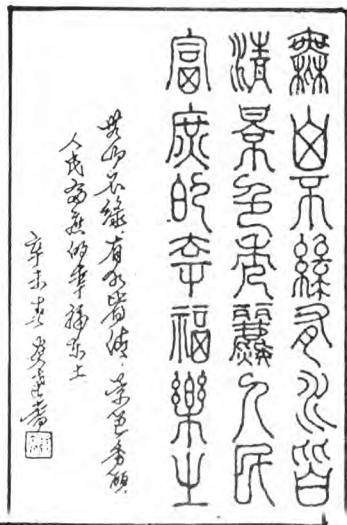 無山不綠有水皆
清景色秀麗人民
富庶的幸福樂土
無山不綠.有水皆清.景色秀麗.
人民富庶的幸福乐土
辛未春 書